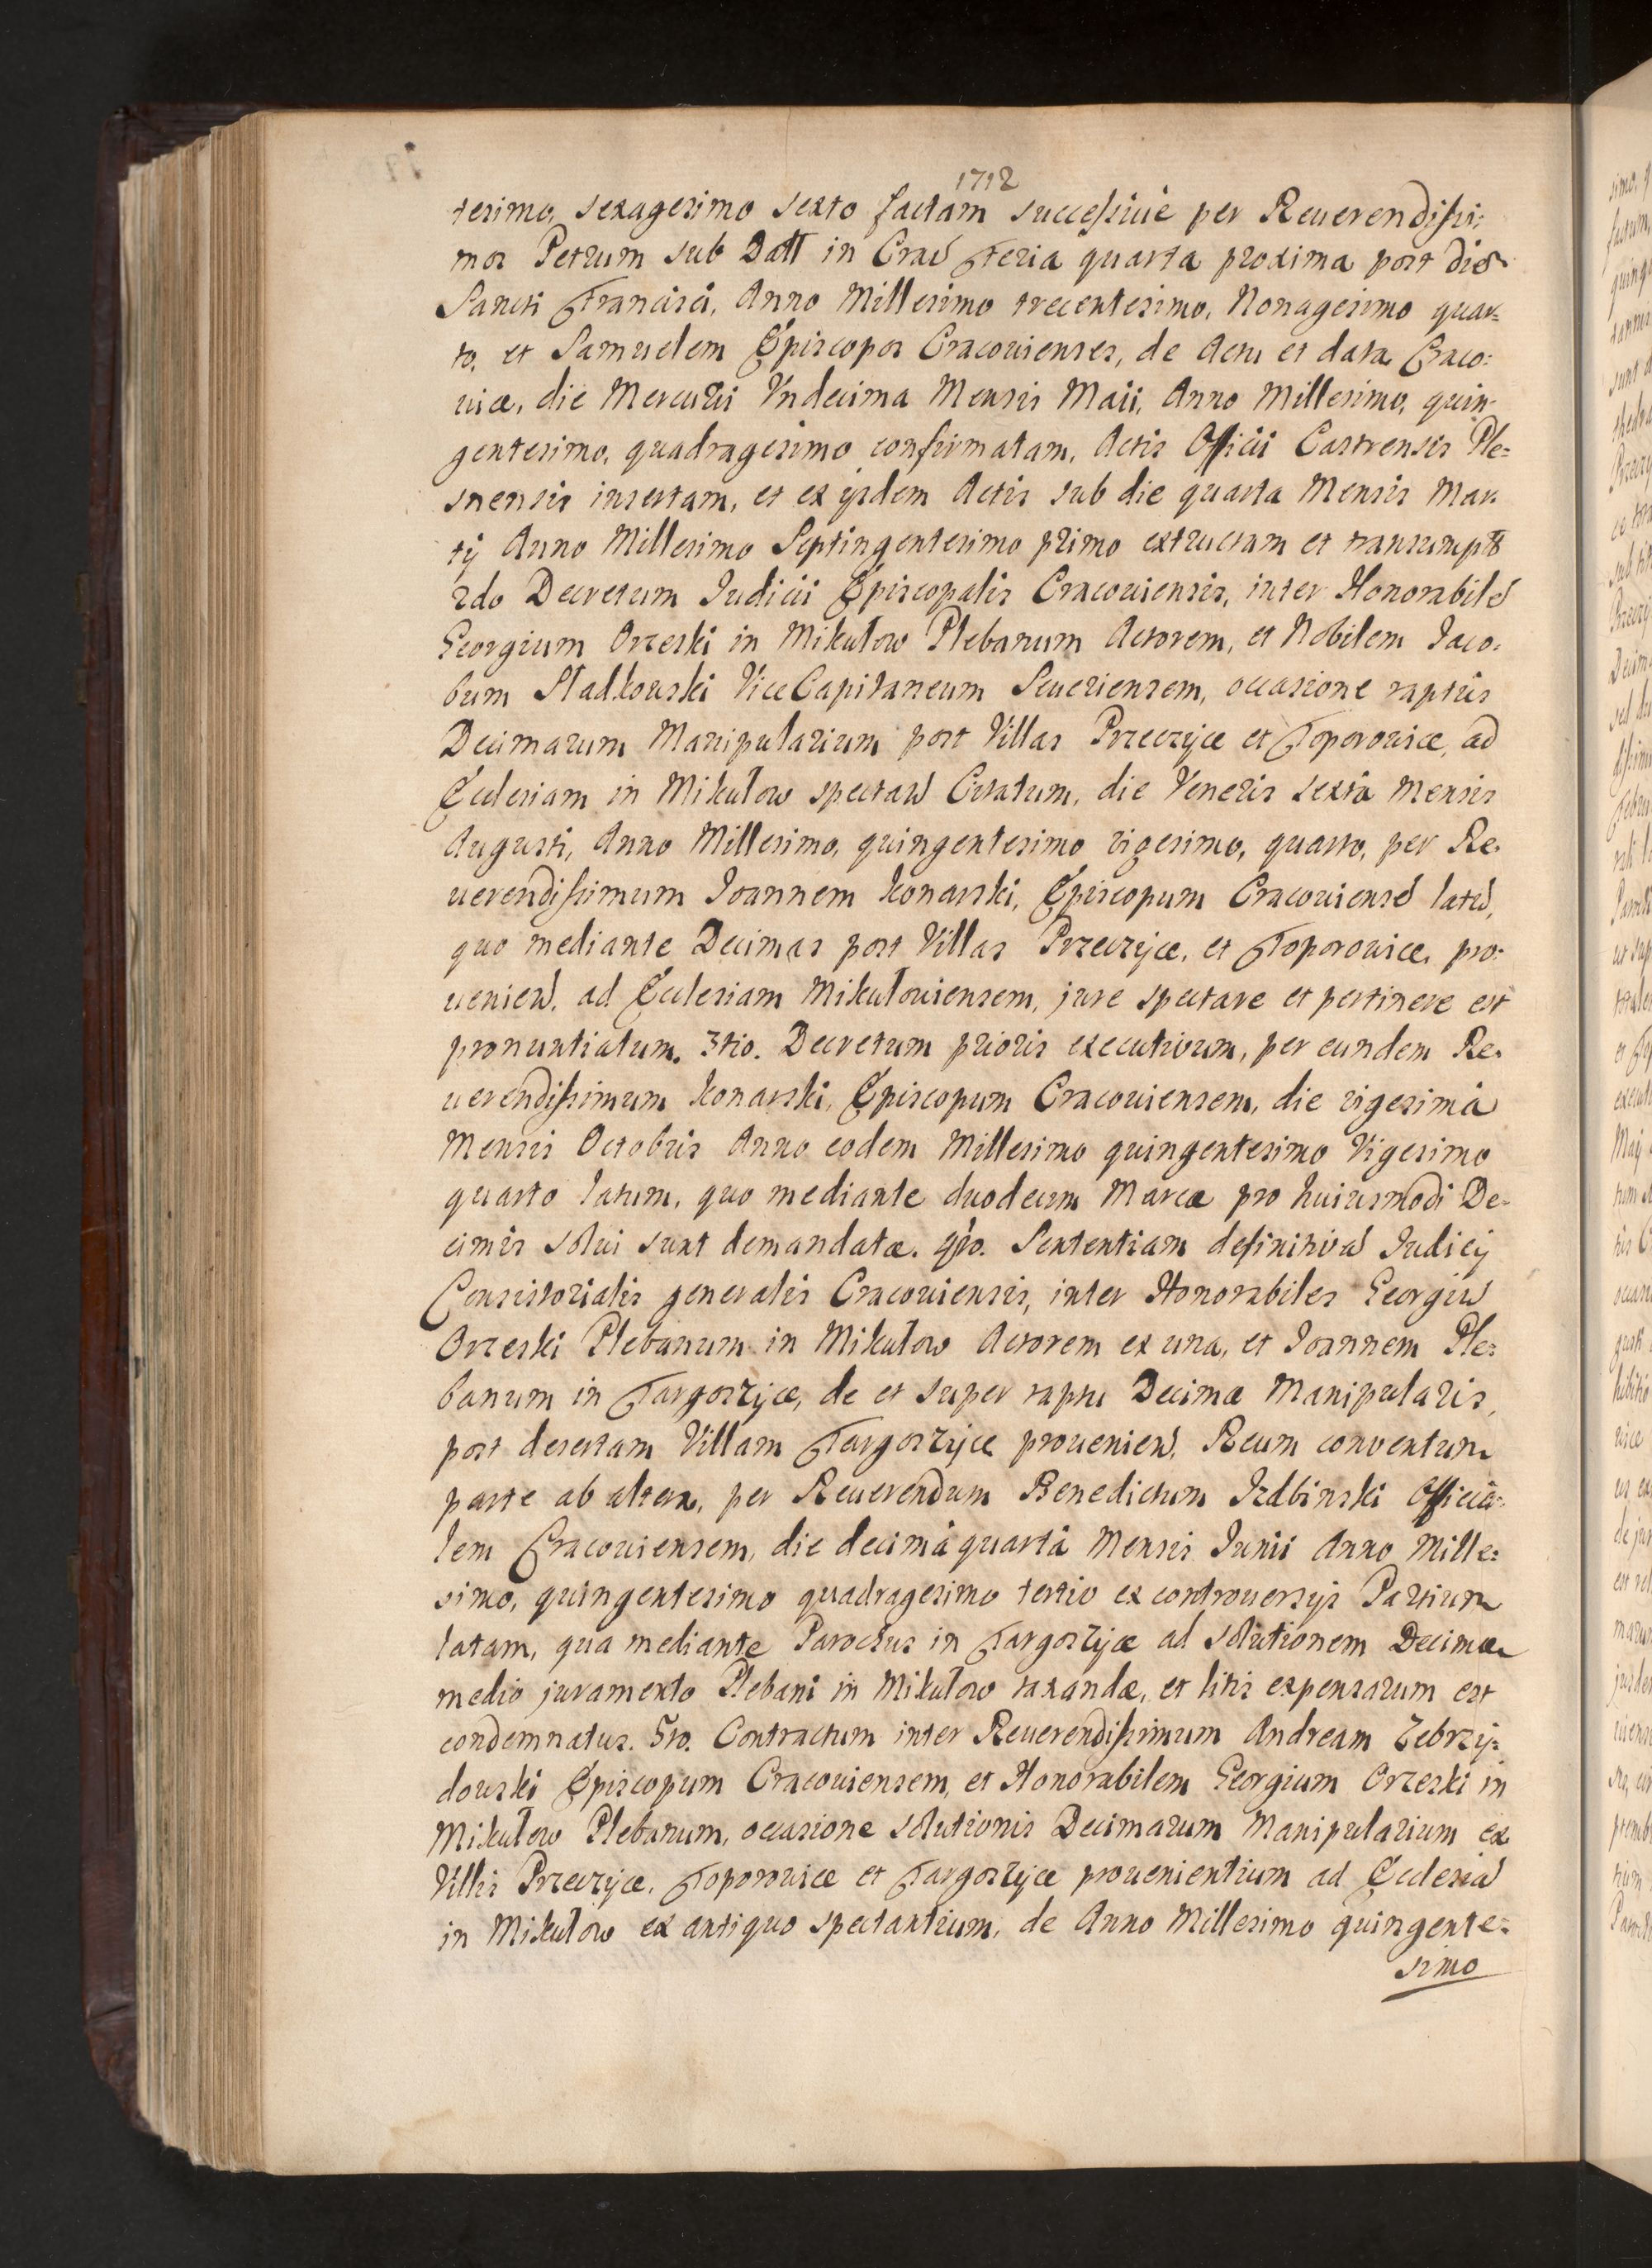 1712
tesimo, sexagesimo sexto factam successiuè per Reuerendissi:
mos Petrum sub Datt in Crac Feria quarta proxima post die
Sancti Francisci, Anno Millesimo trecentesimo, Nonagesimo quar=
to, et Samuelem Episcopos Cracouienses, de Actu et data Craco:
uiæ, die Mercurii Vndecima Mensis Maii, Anno Millesimo, quin-
gentesimo, quadragesimo confirmatam, Actis Officii Castrensis Ple=
snensis insertam, et ex ijsdem Actis sub die quarta Mensis Mar-
tij Anno Millesimo Septingentesimo primo extractam et transumpt
2do Decretum Iudicii Episcopalis Cracouiensis, inter Honorabile
Georgium Orzeski in Mikułow Plebanum Actorem, et Nobilem Iaco:
bum Sładkowski ViceCapitaneum Seueriensem, occasione raptûs
Decimarum Manipularium post Villas Przeczyce et Toporowice, ad
Ecclesiam in Mikułow spectan Citatum, die Veneris sexta Mensis
Augusti, Anno Millesimo, quingentesimo vigesimo, quarto, per Re-
uerendissimum Ioannem Konarski, Episcopum Cracouiense latu,
quo mediante Decimas post Villas Przeczyce, et Toporowice, pro:
uenien, ad Ecclesiam Mikułouiensem, jure spectare et pertinere est
pronuntiatum. 3tio. Decretum prioris executivum, per eundem Re-
uerendissimum Konarski, Episcopum Cracouiensem, die vigesimâ
Mensis Octobris Anno eodem Millesimo quingentesimo Vigesimo
quarto latum, quo mediante duodecim Marcæ pro huiusmodi De-
cimis solui sunt demandatæ. 4to. Sententiam definitiva Iudicij
Consistorialis generalis Cracouiensis, inter Honorabiles Georgiu
Orzeski Plebanum in Mikułow Actorem ex una, et Ioannem Ple=
banum in Targoszyce, de et super raptu Decimæ Manipularis,
post desertam Villam Targoszyce prouenien, Reum conventum
parte ab altera, per Reuerendum Benedictum Izdbinski Officia=
lem Cracouiensem, die decimâ quartâ Mensis Iunii Anno Mille=
simo, quingentesimo quadragesimo tertio ex controuersijs Partium
latam, qua mediante Parochus in Targoszyce ad solutionem Decimæ
medio juramento Plebani in Mikułow taxandæ, et litis expensarum est
condemnatus. 5to. Contractum inter Reuerendissimum Andream Zebrzy=
dowski Episcopum Cracouiensem, et Honorabilem Georgium Orzeski in
Mikułow Plebanum, occasione solutionis Decimarum Manipularium ex
Villis Przeczyce, Toporowice et Targoszyce prouenientium ad Ecclesia
in Mikułow ex antiquo spectantium, de Anno Millesimo quingente=
simo